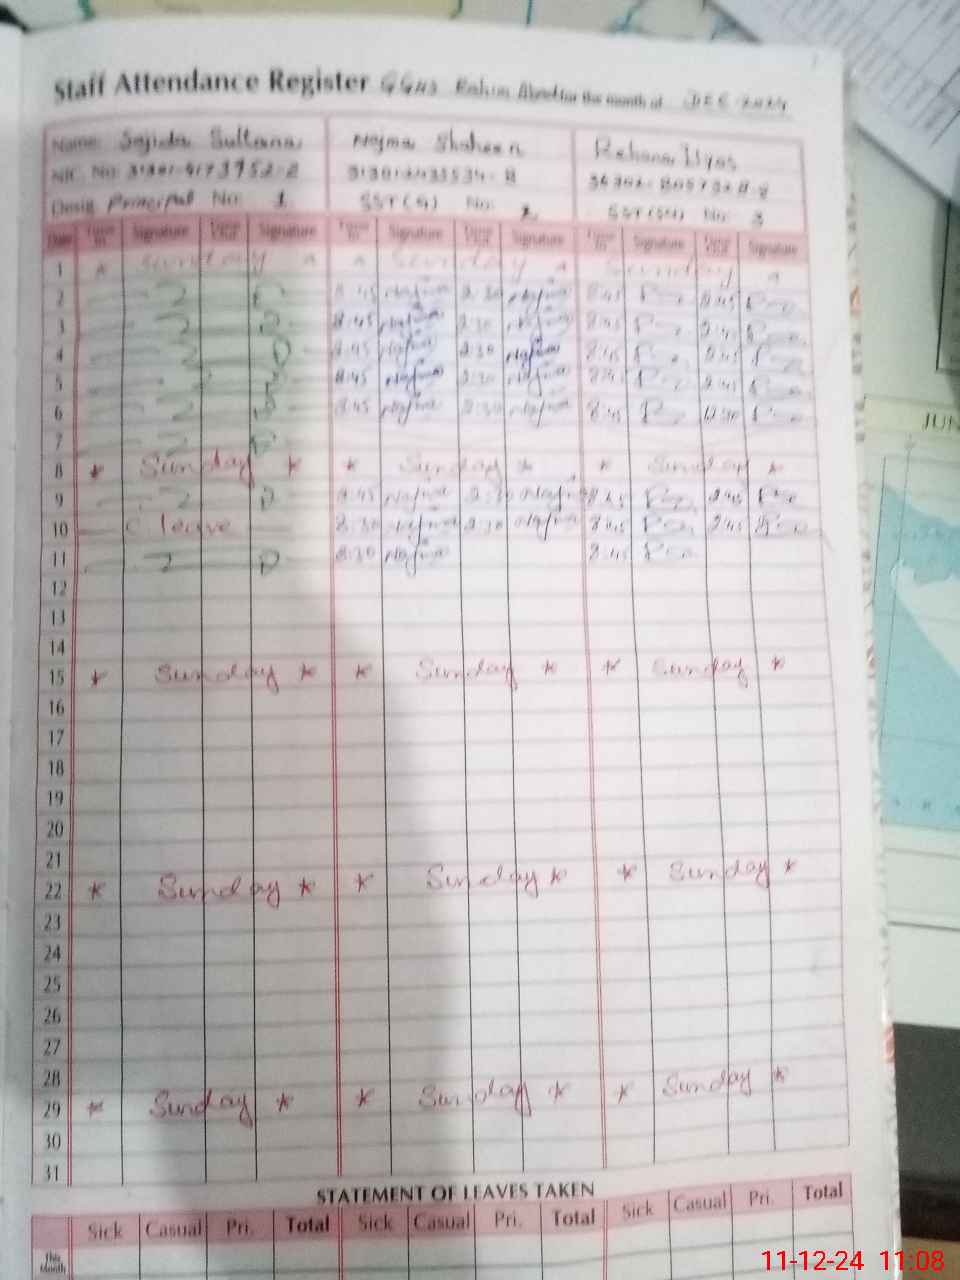 Staff Attendance Register GGHS for the month of DEC 2024
Name: Sajida Sultana Najma Shaheen Rehana Ilyas
NIC. No.
Desig. Principal No: 1 SST(G) No: 2 No: 3
Date Time In Signature Time Out Signature Time In Signature Time Out Signature Time In Signature Time Out Signature
1 * Sunday * * Sunday * Sunday *
2 P 8:45 Najma 2:30 Najma 8:45
3 P 8:45 Najma 2:30 Najma 8:45
4 P 8:45 Najma 2:30 Najma 8:45
5 P 8:45 Najma 2:30 Najma 8:45
6 P 8:45 Najma 2:30 Najma 8:45 12:30
7 P
8 * Sunday * * Sunday * * Sunday *
9 P 8:45 Najma 2:30 Najma 8:45 2:45
10 C leave 8:30 Najma 2:30 Najma 8:45 2:45
11 P 8:30 Najma 8:45
12
13
14
15 * Sunday * * Sunday * * Sunday *
16
17
18
19
20
21
22 * Sunday * * Sunday * * Sunday *
23
24
25
26
27
28
29 * Sunday * * Sunday * * Sunday *
30
31
STATEMENT OF LEAVES TAKEN
Sick Casual Pri. Total Sick Casual Pri. Total Sick Casual Pri. Total
This Month
JUN
11-12-24 11:08